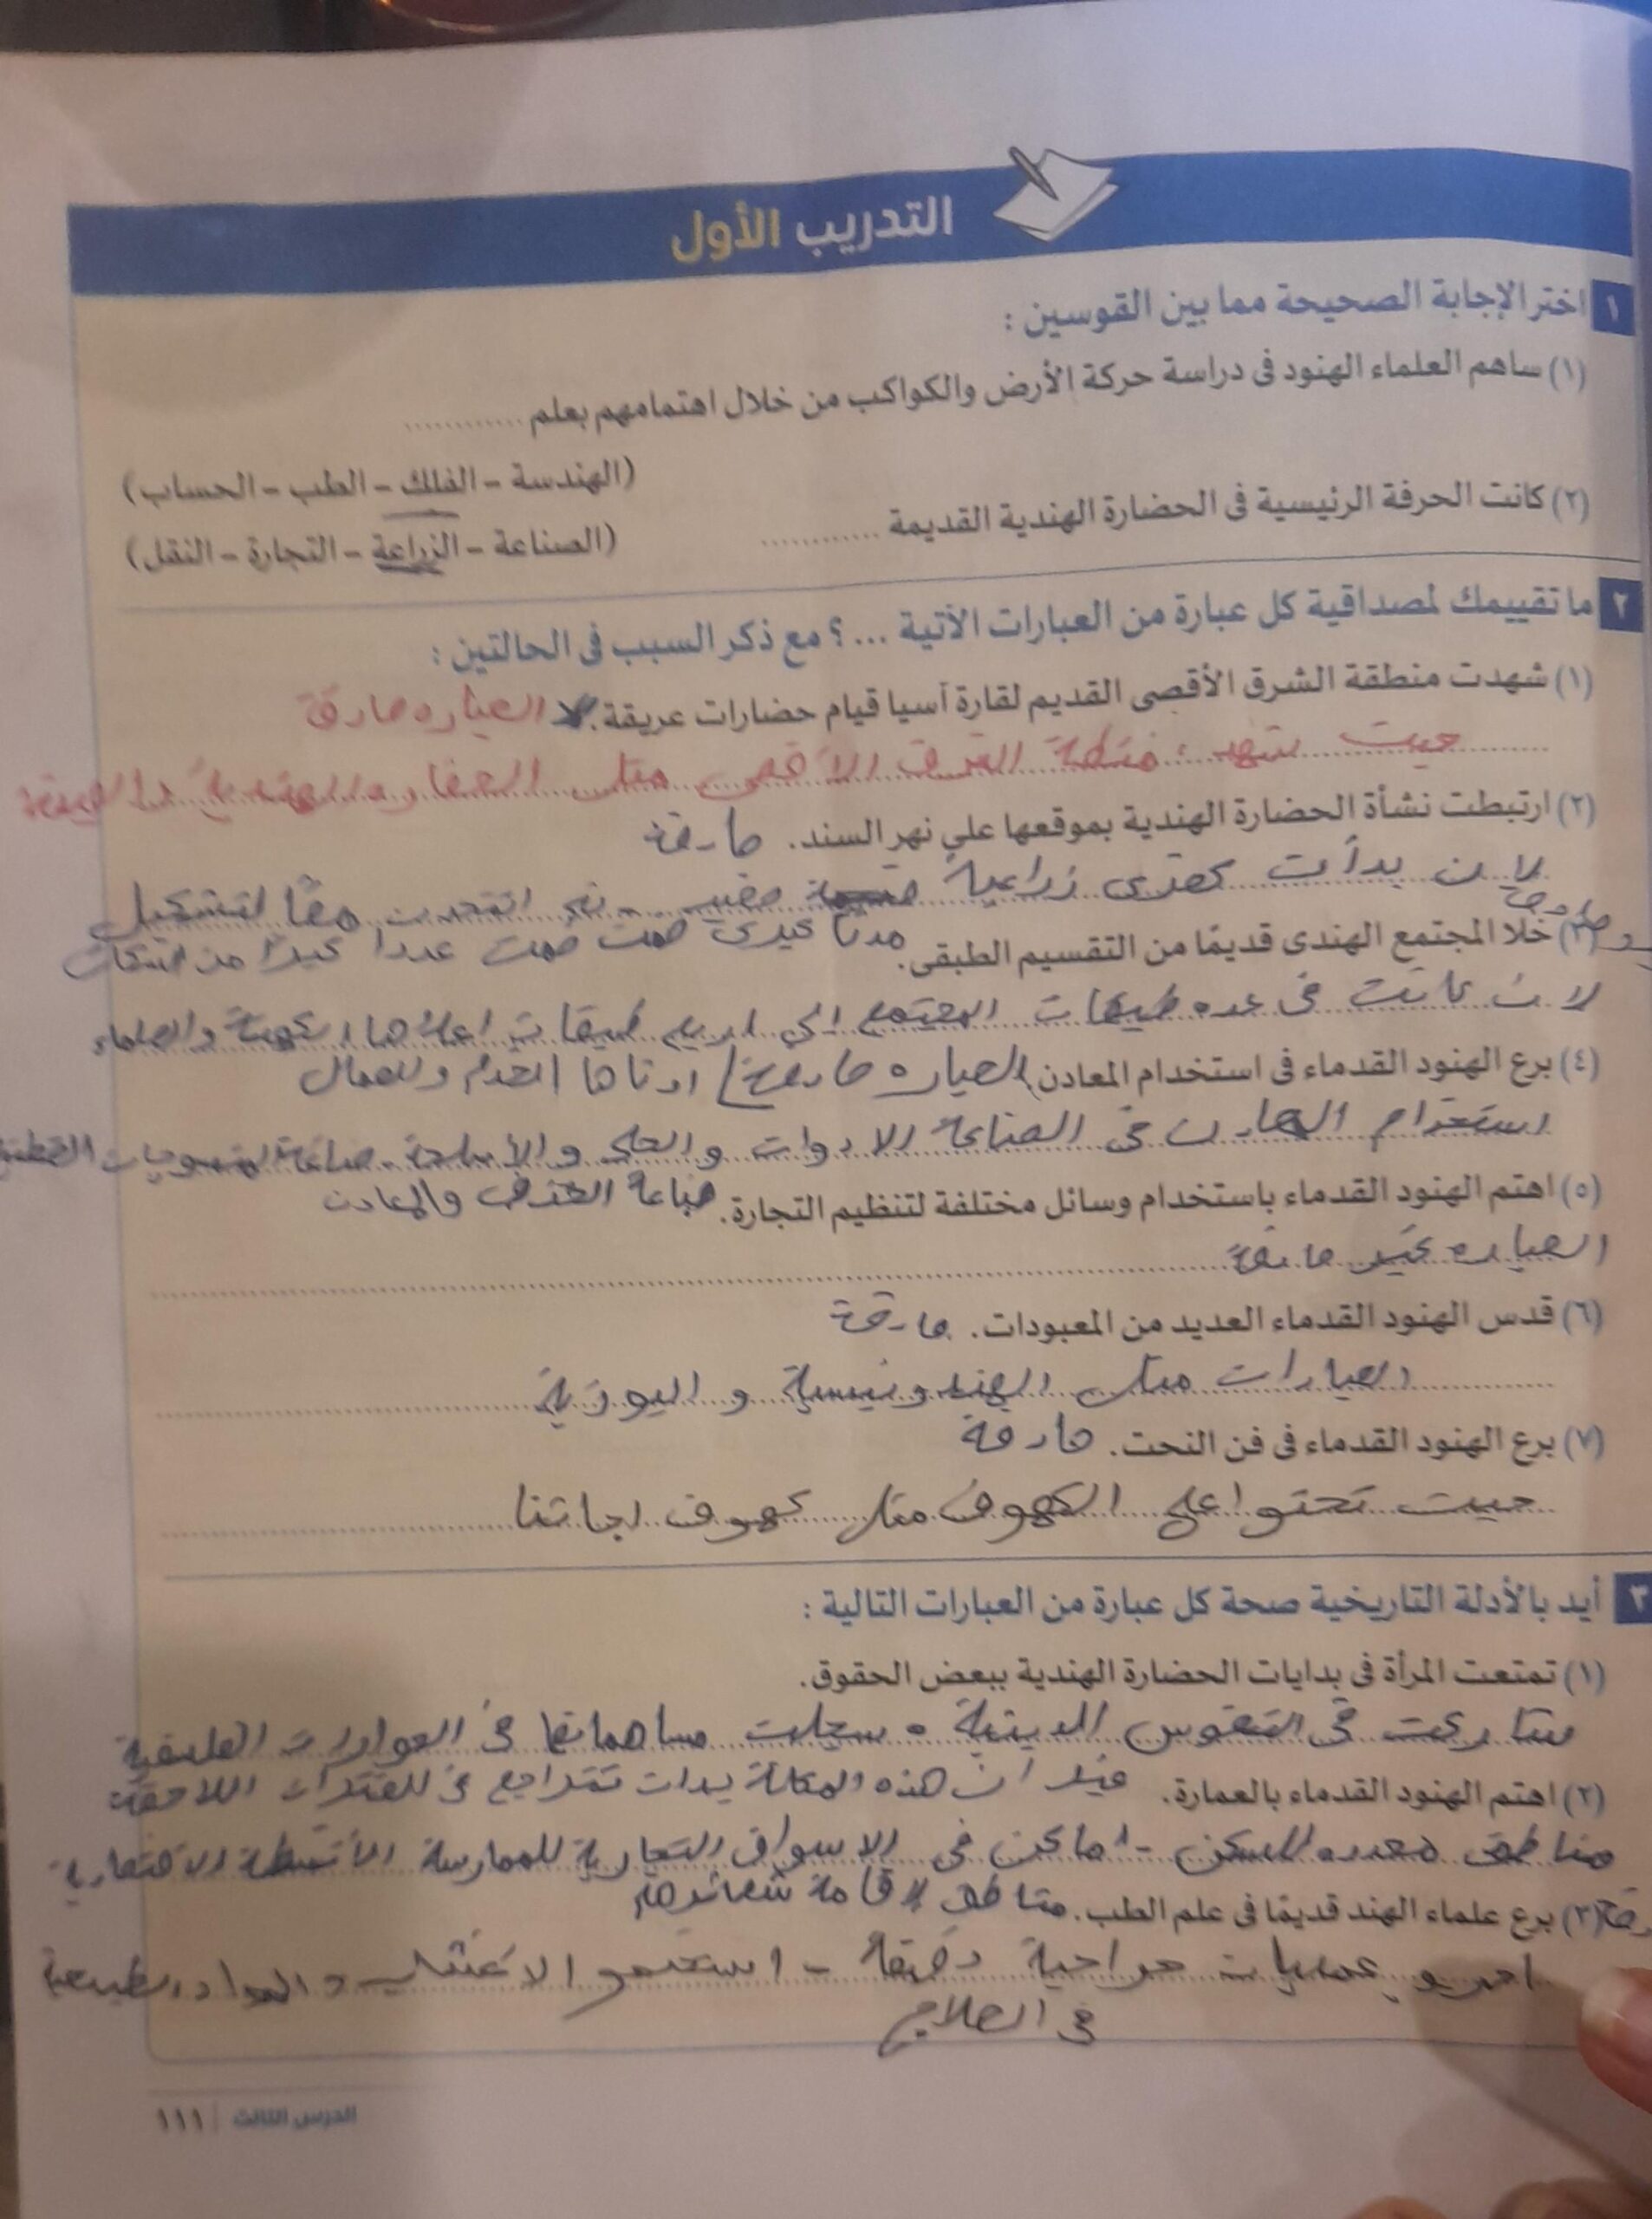 التدريب الأول
١ اختر الإجابة الصحيحة مما بين القوسين :
(١) ساهم العلماء الهنود فى دراسة حركة الأرض والكواكب من خلال اهتمامهم بعلم ............
(الهندسة - الفلك - الطب - الحساب)
(٢) كانت الحرفة الرئيسية فى الحضارة الهندية القديمة ............
(الصناعة - الزراعة - التجارة - النقل)
٢ ما تقييمك لمصداقية كل عبارة من العبارات الآتية ... ؟ مع ذكر السبب فى الحالتين :
(١) شهدت منطقة الشرق الأقصى القديم لقارة آسيا قيام حضارات عريقة. العباره صادقة
حيث شهد منطقة الشرق الأقصى مثل
(٢) ارتبطت نشأة الحضارة الهندية بموقعها على نهر السند. صادقة
لان بدأت كقرى زراعية ثم اتحدت معًا لتشكيل
مدنًا كبرى ضمت عددا كبيرًا من السكان
(٣) خلا المجتمع الهندى قديمًا من التقسيم الطبقى.
لان كانت فى عده طبقات المجتمع الى اربع طبقات اعلاها الكهنة والعلماء
ادناها الخدم والعمال
(٤) برع الهنود القدماء فى استخدام المعادن. العباره صادقة
استخدام المعادن فى الصناعة الادوات والحلى والأسلحة صناعة المنسوجات القطنية
صناعة الخزف والمعادن
(٥) اهتم الهنود القدماء باستخدام وسائل مختلفة لتنظيم التجارة.
العباره غير صادقة
(٦) قدس الهنود القدماء العديد من المعبودات. صادقة
مثل الهندوسية و البوذية
(٧) برع الهنود القدماء فى فن النحت. صادقة
حيث تحتوا على الكهوف مثل كهوف اجانتا
٣ أيد بالأدلة التاريخية صحة كل عبارة من العبارات التالية :
(١) تمتعت المرأة فى بدايات الحضارة الهندية ببعض الحقوق.
شاركت فى الطقوس الدينية و سجلت مساهماتها فى الحوارات الفلسفية
غير ان هذه المكانة بدات تتراجع فى الفترات اللاحقة
(٢) اهتم الهنود القدماء بالعمارة.
مناطق محدده للسكن - اماكن فى الاسواق التجارية لممارسة الأنشطة الاقتصادية
مناطق لاقامة شعائرهم
(٣) برع علماء الهند قديمًا فى علم الطب.
اجريو عمليات جراحية دقيقة - والمواد الطبيعية
فى العلاج
الدرس الثالث | ١١١